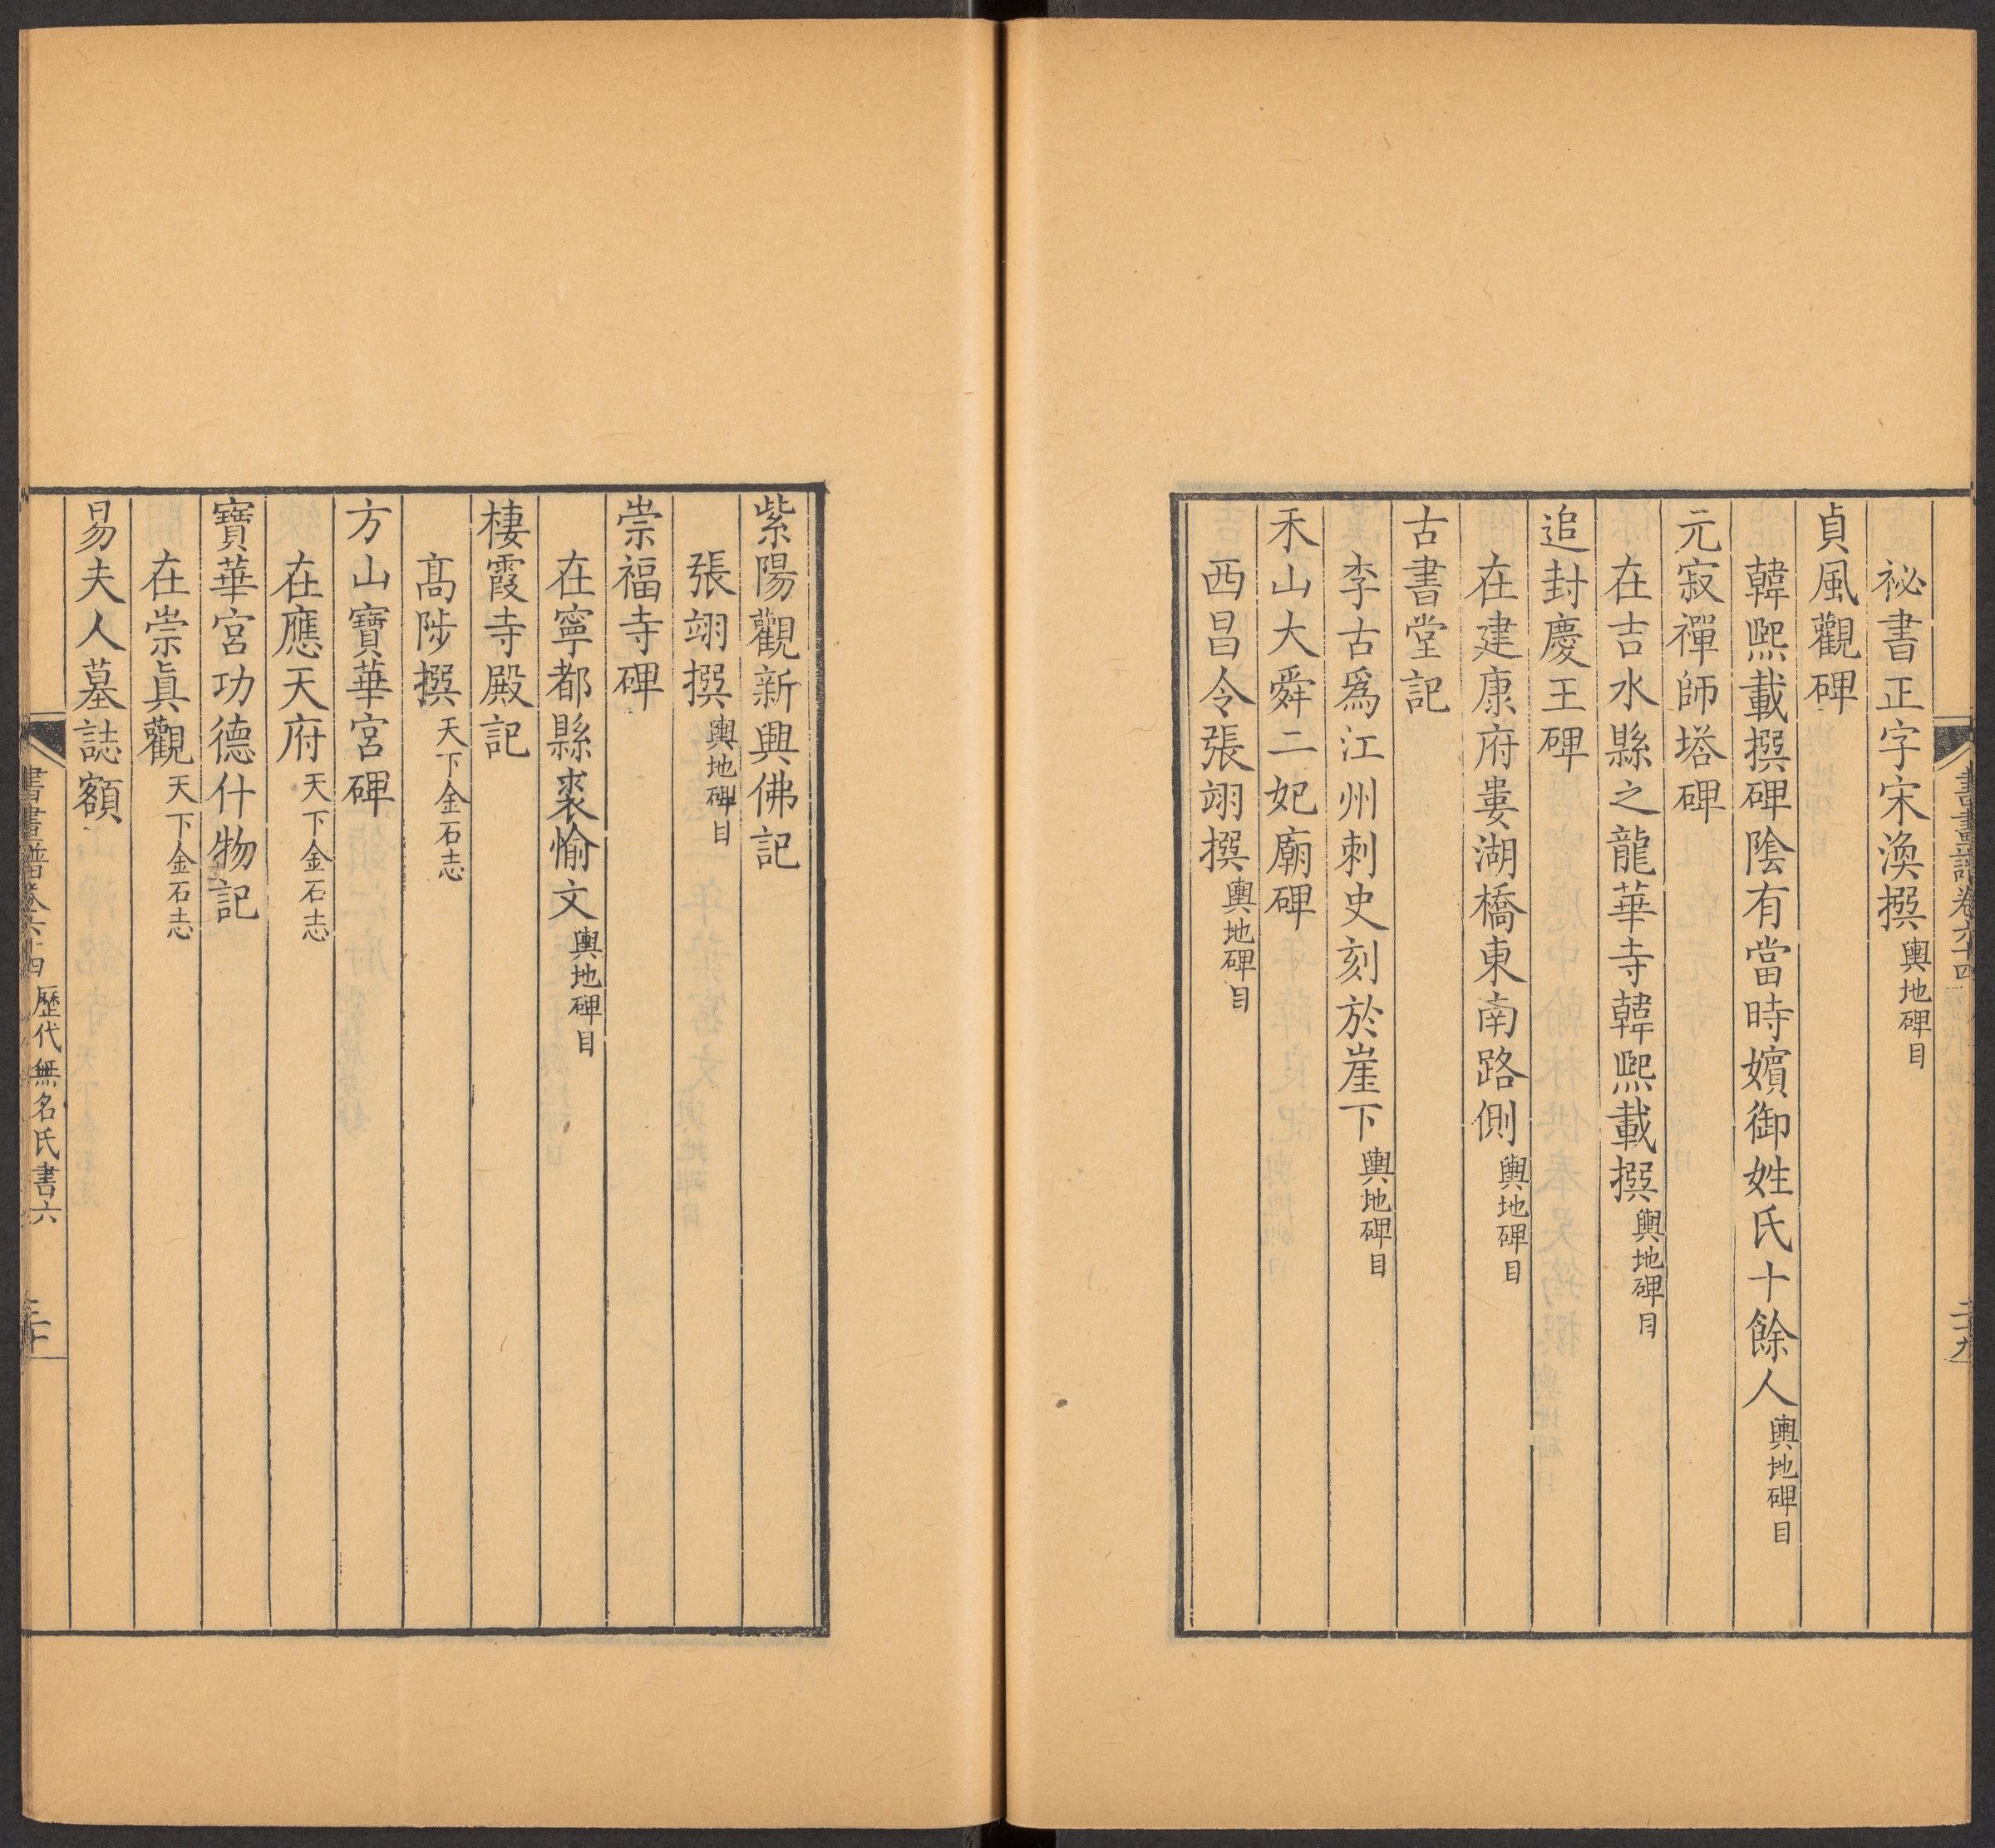 書畫譜卷六十四
二十九
祕書正字宋渙撰輿地碑目
貞風觀碑
韓熙載撰碑陰有當時嬪御姓氏十餘人輿地碑目
元寂禪師塔碑
在吉水縣之龍華寺韓熙載撰輿地碑目
追封慶王碑
在建康府婁湖橋東南路側輿地碑目
古書堂記
李古爲江州刺史刻於崖下輿地碑目
禾山大舜二妃廟碑
西昌令張翊撰輿地碑目
紫陽觀新興佛記
張翊撰輿地碑目
崇福寺碑
在寧都縣裘愉文輿地碑目
棲霞寺殿記
高陟撰天下金石志
方山寶華宮碑
在應天府天下金石志
寶華宮功德什物記
在崇眞觀天下金石志
易夫人墓誌額
書畫譜卷六十四 歷代無名氏書六
三十